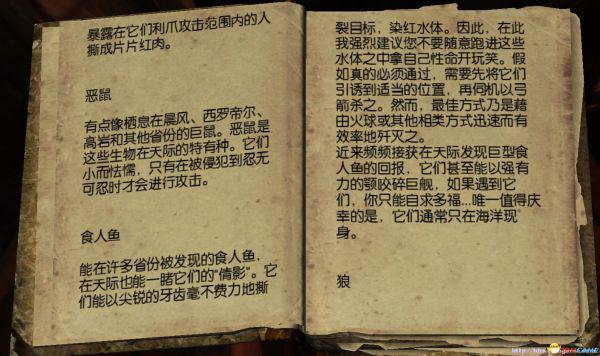 暴露在它们利爪攻击范围内的人
撕成片片红肉。
恶鼠
有点像栖息在晨风、西罗帝尔、
高岩和其他省份的巨鼠。恶鼠是
这些生物在天际的特有种。它们
小而怯懦，只有在被侵犯到忍无
可忍时才会进行攻击。
食人鱼
能在许多省份被发现的食人鱼，
在天际也能一睹它们的“倩影”。它
们能以尖锐的牙齿毫不费力地撕
裂目标，染红水体。因此，在此
我强烈建议您不要随意跑进这些
水体之中拿自己性命开玩笑。假
如真的必须通过，需要先将它们
引诱到适当的位置，再伺机以弓
箭杀之。然而，最佳方式乃是藉
由火球或其他相类方式迅速而有
效率地歼灭之。
近来频频接获在天际发现巨型食
人鱼的回报，它们甚至能以强有
力的颚咬碎巨舰，如果遇到它
们，你只能自求多福...唯一值得庆
幸的是，它们通常只在海洋现
身。
狼